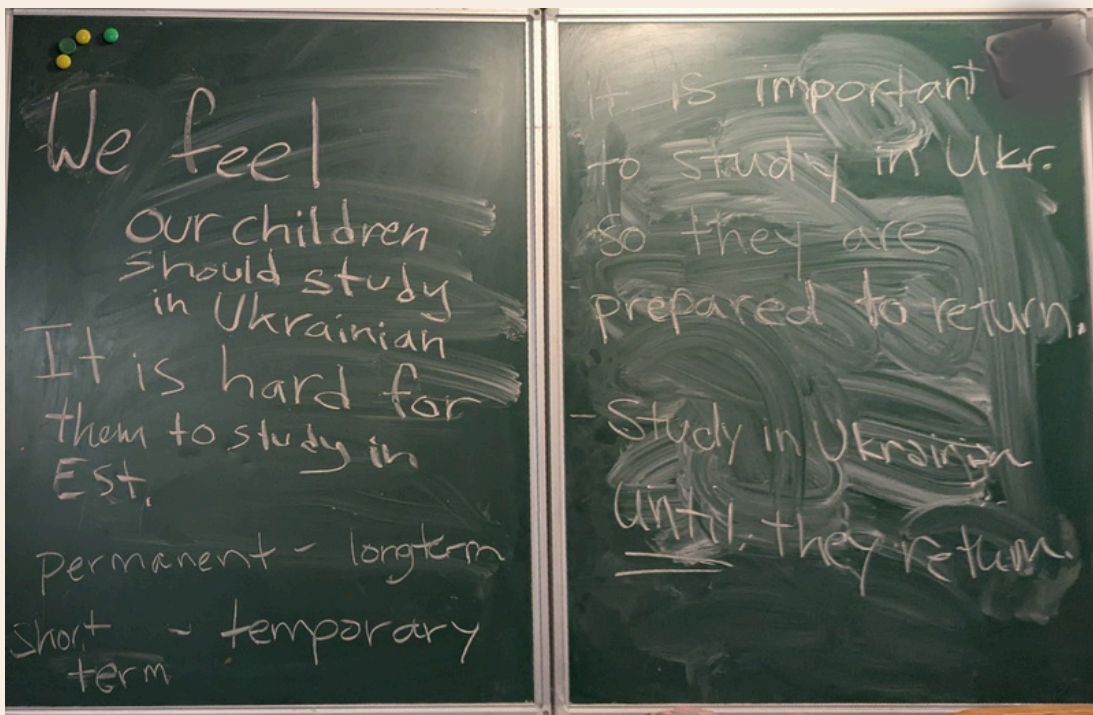 We feel
our children
should study
in Ukrainian
It is hard for
them to study in
Est.
permanent - longterm
short - temporary
term
it is important
to study in Ukr.
so they are
prepared to return.
- Study in Ukrainian
until they return.